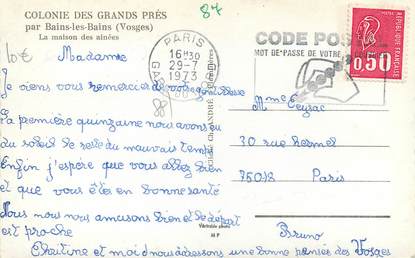 COLONIE DES GRANDS PRÉS
par Bains-les-Bains (Vosges)
La maison des aînées
84
10€
Madame
Je viens vous remercier de votre gentillesse
La première quinzaine nous avons eu
du soleil le reste du mauvais temps
Enfin j'espère que vous allez bien
et que vous êtes en bonne santé
Nous nous nous amusons bien et le départ
est proche
Bruno
Christine et moi nous adressons une bonne pensée des Vosges
PARIS
16H30
29-7
1973
CODE POSTAL
MOT DE PASSE DE VOTRE
REPUBLIQUE FRANÇAISE
0,50
Mme Eeyzac
30 rue hermel
75018 Paris
Véritable photo
M F